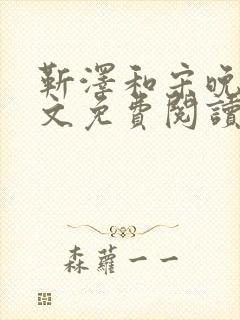 靳澤和宋晚
文免費閱讀
森蘿一一